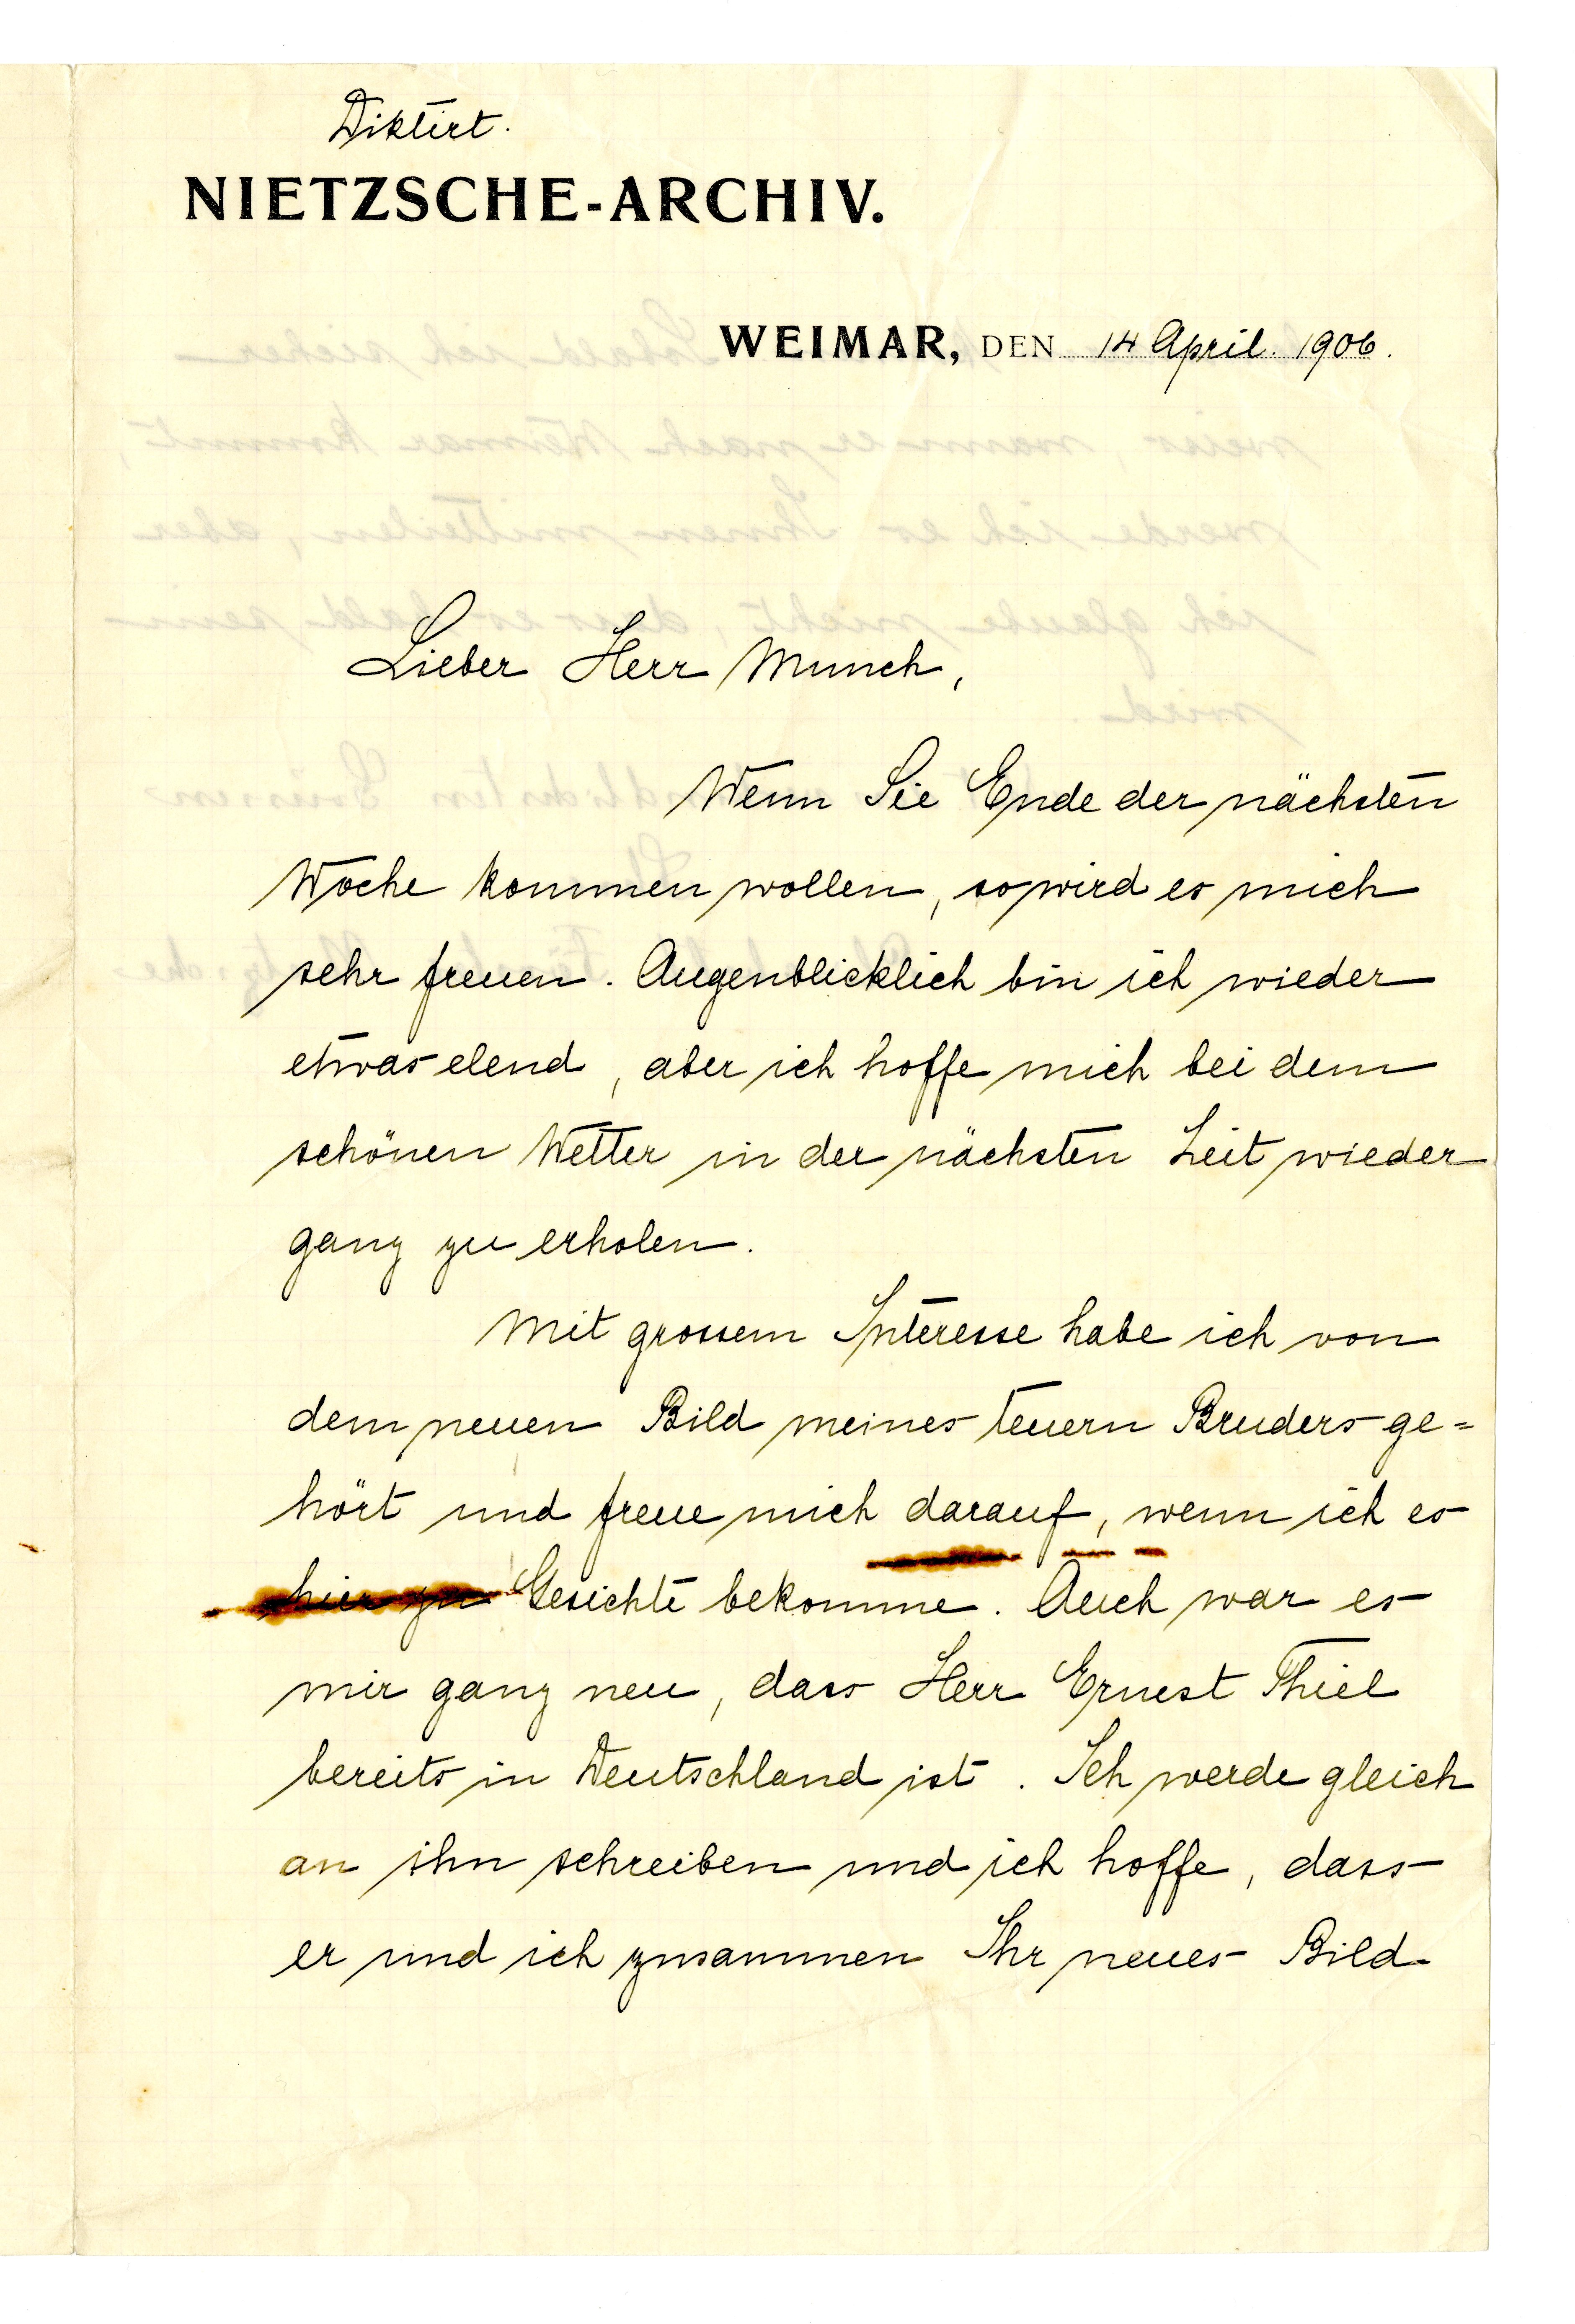 Diktirt.
NIETZSCHE-ARCHIV.
WEIMAR, DEN 14 April. 1906.
Lieber Herr Munch,
Wenn Sie Ende der nächsten
Woche kommen wollen, so wird es mich
sehr freuen. Augenblicklich bin ich wieder
etwas elend, aber ich hoffe mich bei dem
schönen Wetter in der nächsten Zeit wieder
ganz zu erholen.
Mit grossem Interesse habe ich von
dem neuen Bild meines teuern Bruders ge=
hört und freue mich darauf, wenn ich es
hier zu Gesichte bekomme. Auch war es
mir ganz neu, dass Herr Ernest Thiel
bereits in Deutschland ist. Ich werde gleich
an ihn schreiben und ich hoffe, dass
er und ich zusammen Ihr neues Bild